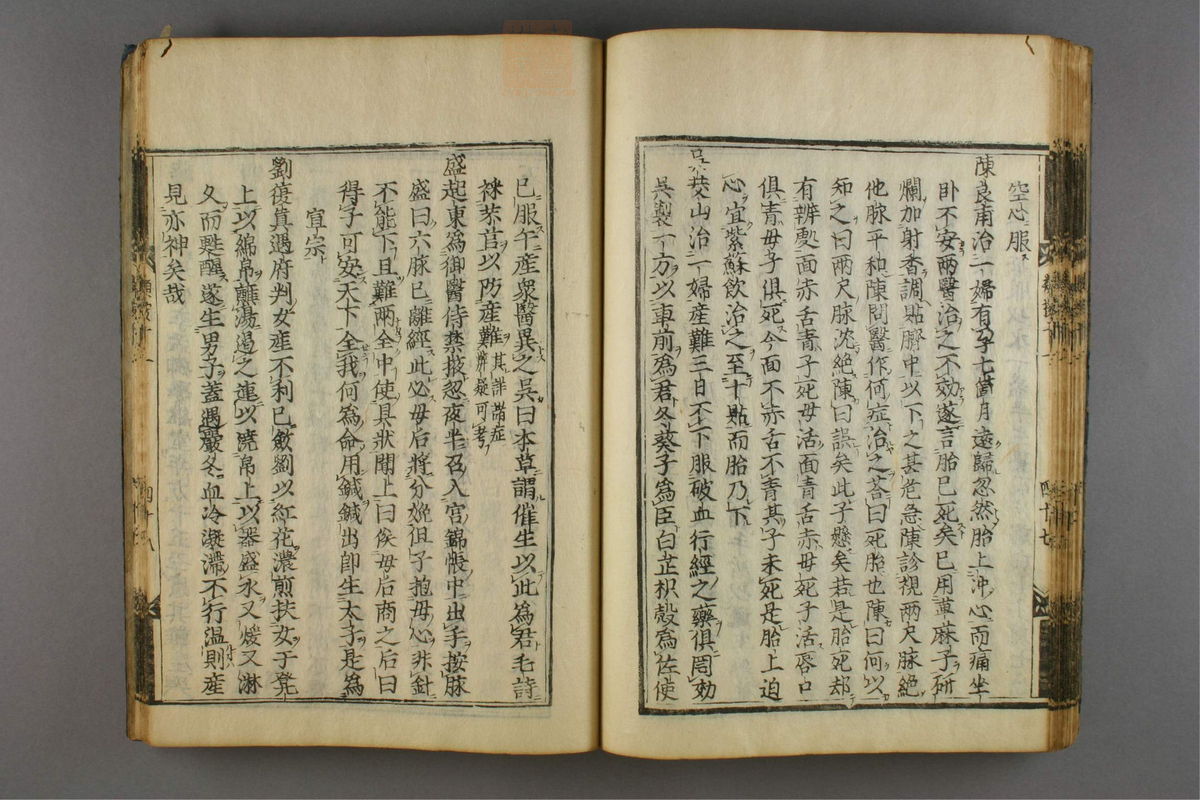 空心服
陳良甫治一婦有孕七箇月遠歸忽然胎上沖心而痛坐
卧不安兩醫治之不効遂言胎已死矣已用萆麻子研
爛加射香調貼臍中以下之甚危急陳診視兩尺脉絶
他脉平和陳問醫作何症治之荅曰死胎也陳曰何以
知之曰兩尺脉沈絶陳曰誤矣此子懸矣若是胎死却
有辨處面赤舌青子死母活面青舌赤母死子活唇口
俱青母子俱死今面不赤舌不青其子未死是胎上迫
心宜紫蘇飲治之至十貼而胎乃下
吳茭山治一婦産難三日不下服破血行經之藥俱罔効
吳製一方以車前爲君冬葵子爲臣白芷枳殻爲佐使
已服午産衆醫異之吳曰本草謂催生以此為君毛詩
采苤苢以防産難其詳諸症辨疑可考
盛起東爲御醫侍禁掖忽夜半召入宮錦帳中出手按脉
盛曰六脉已離經此必母后將分娩但子抱母心非針
不能下且難兩全中使具狀聞上曰俟母后商之后曰
得子可安天下全我何為命用鍼鍼出即生太子是為
宣宗
劉復真遇府判女産不利已斂劉以紅花濃煎扶女于凳
上以綿帛蘸湯遏之連以澆帛上以器盛水又煖又淋
久而甦醒遂生男子蓋遇嚴冬血冷凝滯不行温則産
見亦神矣哉
四十七